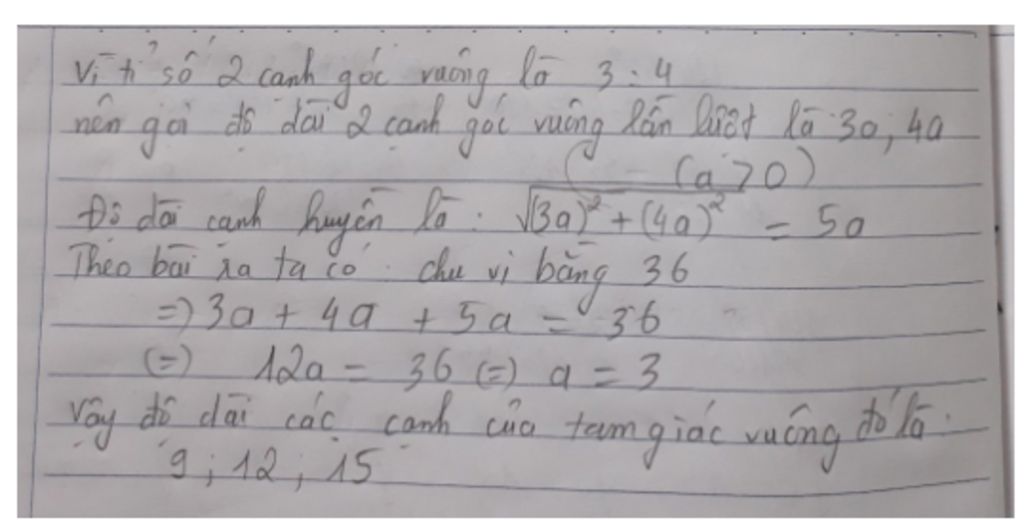 Vì tỉ số 2 cạnh góc vuông là 3 : 4
nên gọi độ dài 2 cạnh góc vuông lần lượt là 3a, 4a
(a > 0)
Độ dài cạnh huyền là : √(3a)² + (4a)² = 5a
Theo bài ra ta có chu vi bằng 36
=> 3a + 4a + 5a = 36
(=) 12a = 36 (=) a = 3
Vậy độ dài các cạnh của tam giác vuông đó là :
9 ; 12 ; 15